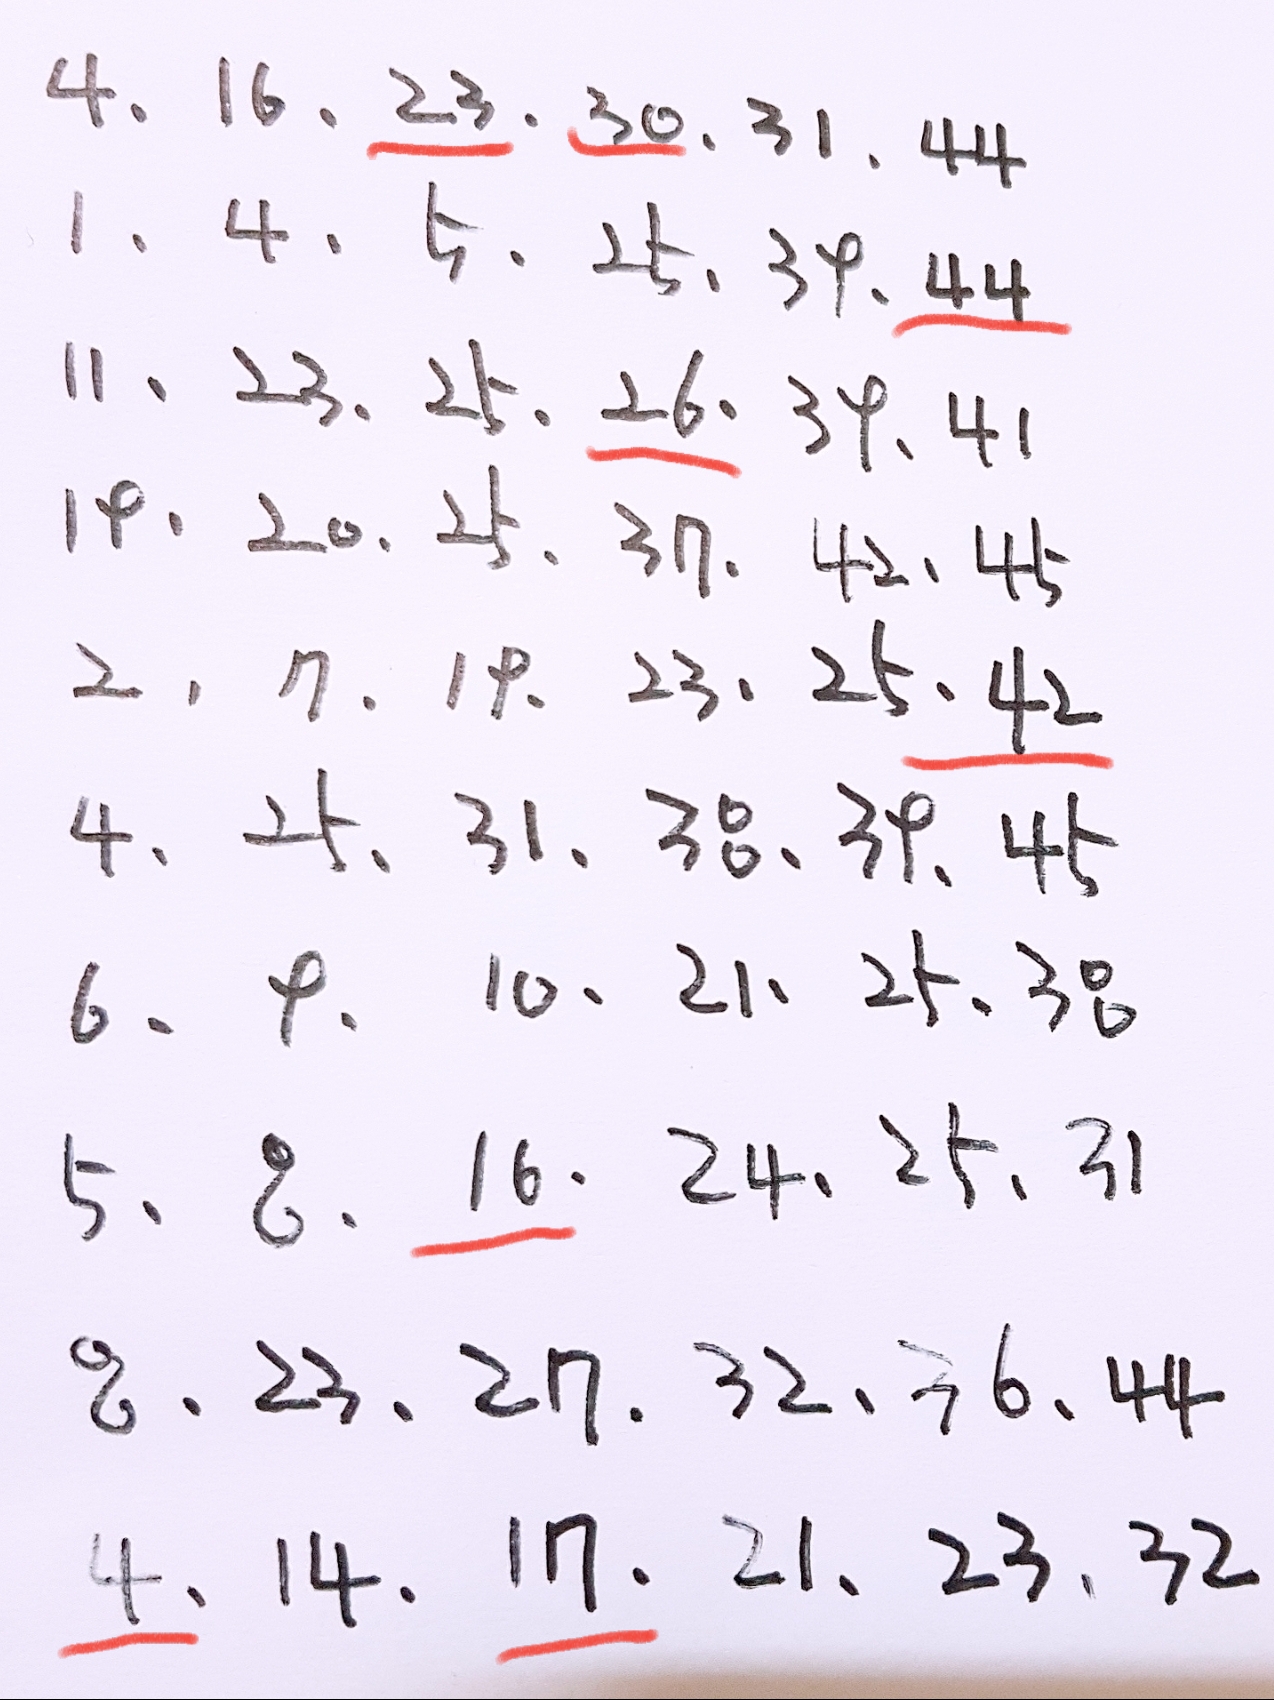 4. 16. 23. 30. 31. 44
1. 4. 5. 25. 39. 44
11. 23. 25. 26. 39. 41
19. 20. 25. 37. 42. 45
2. 7. 19. 23. 25. 42
4. 25. 31. 38. 39. 45
6. 9. 10. 21. 25. 38
5. 8. 16. 24. 25. 31
8. 23. 27. 32. 36. 44
4. 14. 17. 21. 23. 32